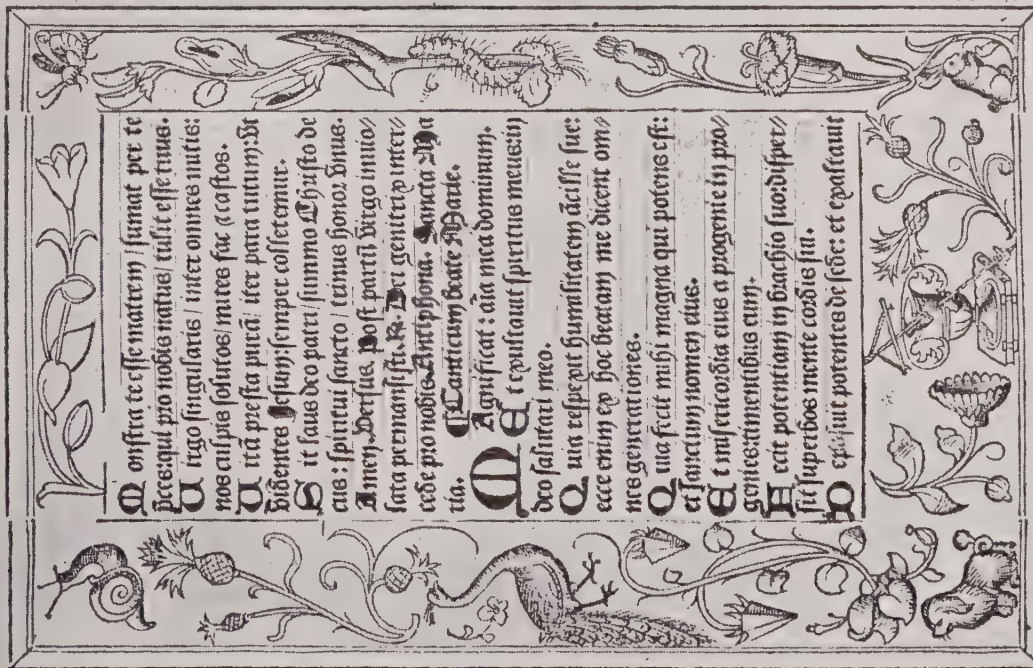 Monstra te esse matrem / sumat per te
p̃ces: qui pro nobis natus / tulit esse tuus.
Uirgo singularis / inter omnes mitis:
nos culpis solutos / mites fac ⁊ castos.
Uitã presta purã / iter para tutum: vt
videntes Jesum: semper colletemur.
Sit laus deo patri / summo Christo de
cus: spiritui sancto / trinus honor vnus.
Amen. Versus. Post partũ virgo inuio//
lata permansisti. R. Dei genitrix inter//
cede pro nobis. Antiphona. Sancta Ma
ria. ¶ Canticum beate Marie.
Magnificat: aĩa mea dominum.
Et exultauit spiritus meus: in
deo salutari meo.
Quia respexit humilitatem ãcille sue:
ecce enim ex hoc beatam me dicent om//
nes generationes.
Quia fecit mihi magna qui potens est:
et sanctum nomen eius.
Et misericordia eius a progenie in pro//
genies: timentibus eum.
Fecit potentiam in brachio suo: disper//
sit superbos mente cordis sui.
Deposuit potentes de sede: et exaltauit